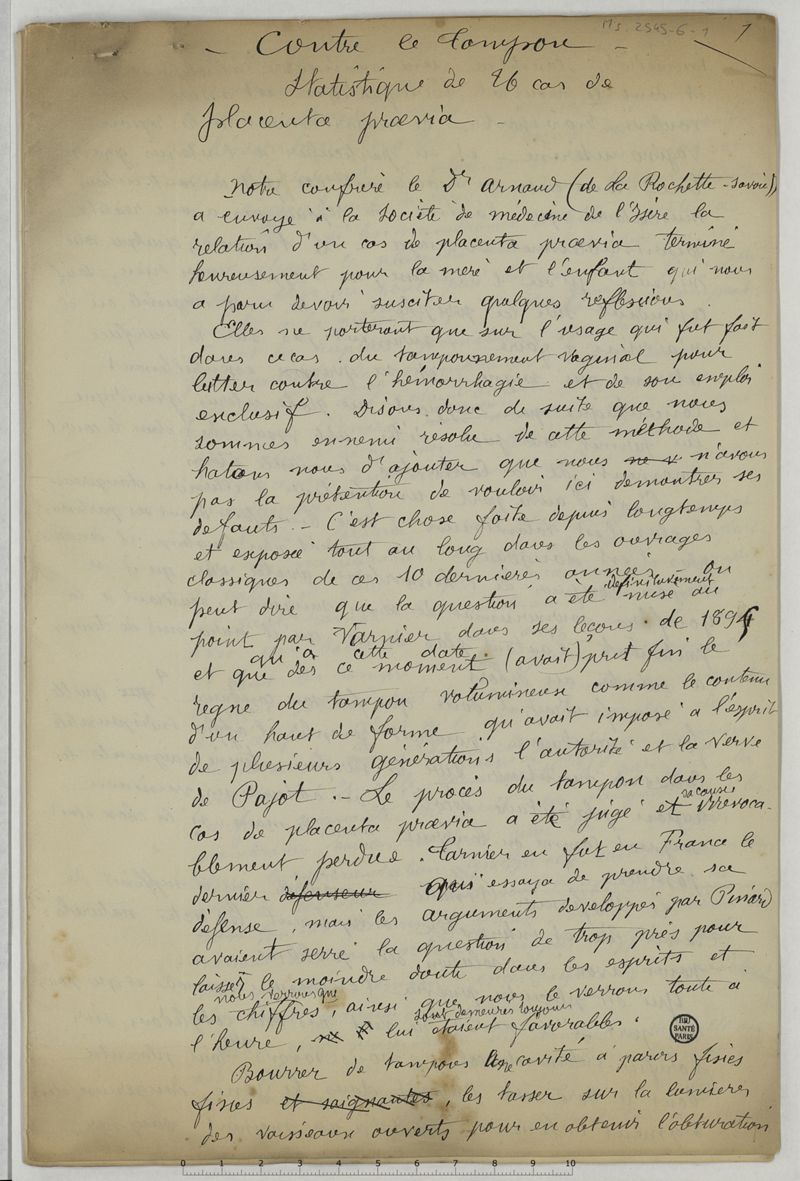 Ms. 2545-6-1
1
- Contre le Tampon -
Statistique de 26 cas de
placenta prævia -
Notre confrère le Dr Arnaud (de La Rochette-Savoie),
a envoyé à la Société de médecine de l'Isère la
relation d'un cas de placenta prævia terminé
heureusement pour la mère et l'enfant qui nous
a paru devoir susciter quelques reflexions.
Elles ne porteront que sur l'usage qui fut fait
dans ce cas du tamponnement vaginal pour
lutter contre l'hémorrhagie et de son emploi
exclusif. Disons donc de suite que nous
sommes ennemi résolu de cette méthode et
hatons nous d'ajouter que nous ne v n'avons
pas la prétention de vouloir ici demontrer ses
defauts - C'est chose faite depuis longtemps
et exposée tout au long dans les ouvrages
classiques de ces 10 dernières années. On
definitivement
peut dire que la question a été mise au
point par Varnier dans ses leçons de 1894
qu'à cette date
et que dès ce moment (avait) prit fin le
règne du tampon volumineux comme le contenu
d'un haut de forme qu'avait imposé à l'esprit
de plusieurs générations l'autorité et la verve
de Pajot. - Le procès du tampon dans les
sa cause
cas de placenta prævia a été jugé et irrévoca-
blement perdue. Tarnier en fut en France le
dernier défenseur qui essaya de prendre sa
défense, mais les arguments developpés par Pinard
avaient serré la question de trop près pour
laisser le moindre doute dans les esprits et
nous verrons que
les chiffres, ainsi que nous le verrons toute à
sont demeurés toujours
l'heure, lui étaient favorables.
Bourrer de tampons une cavité à parois fisies
fisies et saignantes, les tasser sur la lumière
des vaisseaux ouverts pour en obtenir l'obturation
BIU
SANTÉ
PARIS
0 1 2 3 4 5 6 7 8 9 10